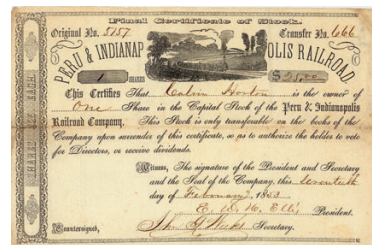 Final Certificate of Stock.
Original No. 5157 Transfer No. 666
PERU & INDIANAPOLIS RAILROAD
1 SHARES $25.00
This Certifies That Calvin Horton is the owner of
One Share in the Capital Stock of the Peru & Indianapolis
Railroad Company. This Stock is only transferable on the books of the
Company upon surrender of this certificate, so as to authorize the holder to vote
for Directors, or receive dividends.
Witness, The signature of the President and Secretary
and the Seal of the Company, this
day of February 1863
President.
Countersigned, Secretary.
SHARES EACH.